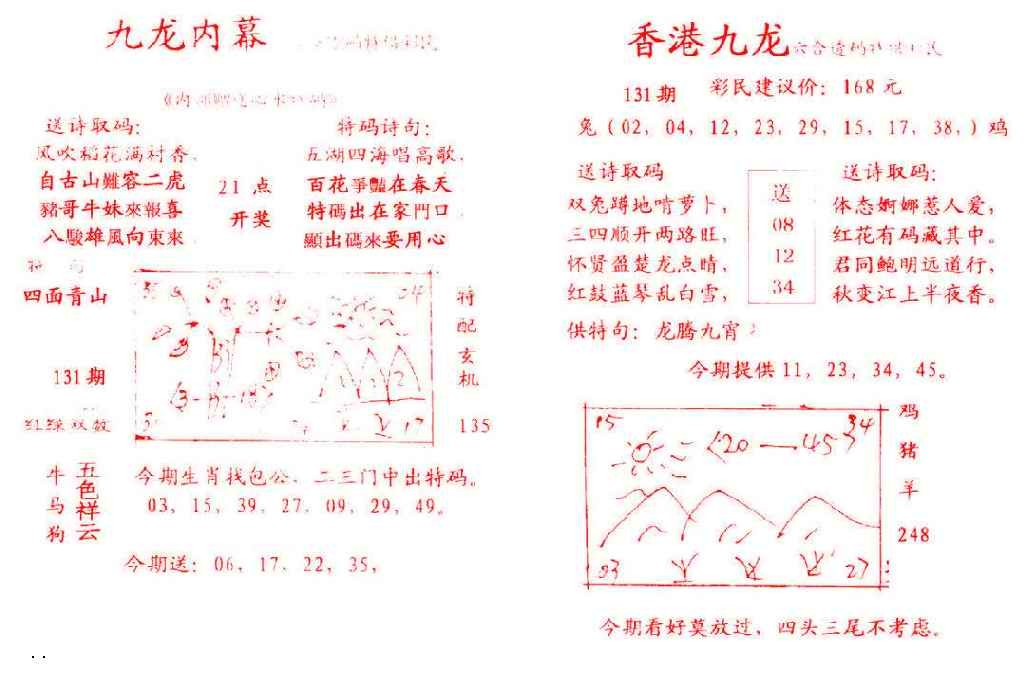 九龙内幕
送诗取码：
风吹稻花满村香.
自古山難容二虎
豬哥牛妹來報喜
八駿雄風向東來
21 点
开奖
特码诗句：
五湖四海唱高歌.
百花爭豔在春天
特碼出在家門口
顯出碼來要用心
四面青山
131期
红绿双数
特配玄机
135
34
(3-
12
牛
马
狗
五色祥云
今期生肖找包公. 二三门中出特码。
03, 15, 39, 27, 09, 29, 49。
今期送: 06, 17. 22, 35,
香港九龙
131期
彩民建议价: 168 元
兔 ( 02, 04, 12, 23, 29, 15, 17, 38, ) 鸡
送诗取码
双兔蹲地啃萝卜,
三四顺开两路旺,
怀贤盈楚龙点睛,
红鼓蓝琴乱白雪,
送
08
12
34
送诗取码:
体态婀娜惹人爱,
红花有码藏其中。
君同鲍明远道行,
秋变江上半夜香。
供特句: 龙腾九宵
今期提供 11, 23, 34, 45。
15
20—45
34
03
23
鸡
猪
羊
248
今期看好莫放过, 四头三尾不考虑。